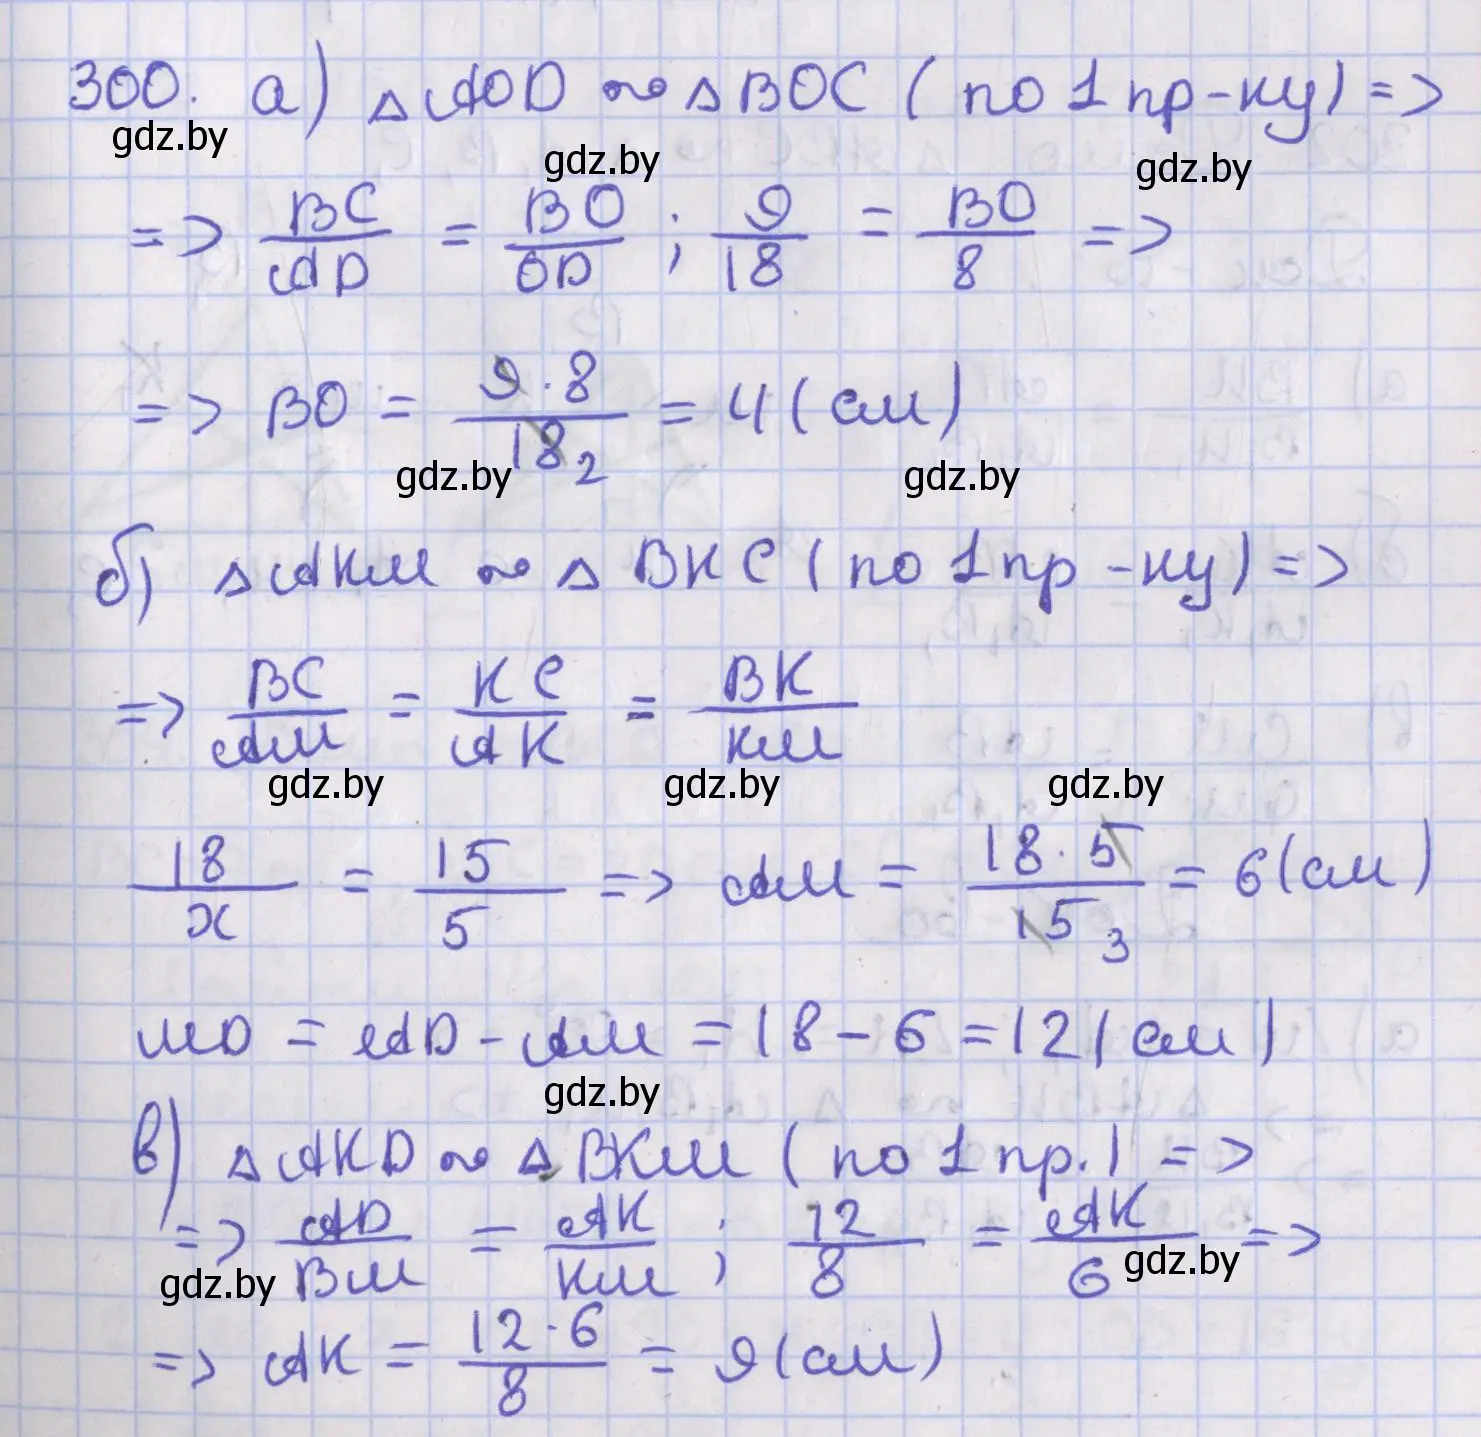 300. а) △AOD ~ △BOC (по 1 пр-ку) =>
gdz.by gdz.by gdz.by
=> BC/AD = BO/OD ; 9/18 = BO/8 =>
=> BO = 9·8/18 2 = 4 (см)
gdz.by gdz.by
б) △AKM ~ △BKC (по 1 пр-ку) =>
=> BC/AM = KC/AK = BK/KM
gdz.by gdz.by gdz.by
18/x = 15/5 => AM = 18·5/15 3 = 6 (см)
MD = AD - AM = 18 - 6 = 12 (см)
gdz.by
в) △AKD ~ △BKM (по 1 пр.) =>
=> AD/BM = AK/KM ; 12/8 = AK/6 =>
gdz.by gdz.by
=> AK = 12·6/8 = 9 (см)